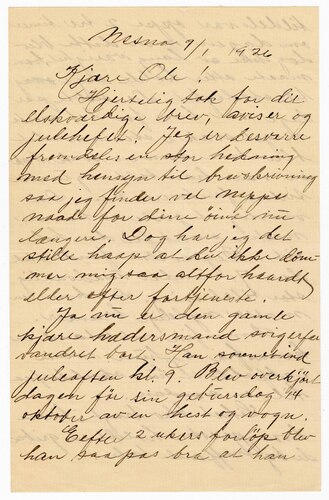 Nesna 9/1 1926
Kjære Ole!
Hjertelig tak for dit
elskværdige brev, aviser og
juleheftet! Jeg er desverre
fremdeles en stor hedning
med hensyn til brevskrivning
saa jeg finder vel neppe
naade for dine öine nu
længere. Dog har jeg det
stille haap at du ikke döm-
mer mig saa altfor haardt
elder efter fortjeneste.
Ja nu er den gamle
kjære hædersmand svigerfar
vandret bort. Han sovnet ind
juleaften kl. 9. Blev overkjört
dagen för sin geburtsdag 14
oktober av en hest og vogn.
Eefter 2 ukers forlöp blev
han saapas bra at han